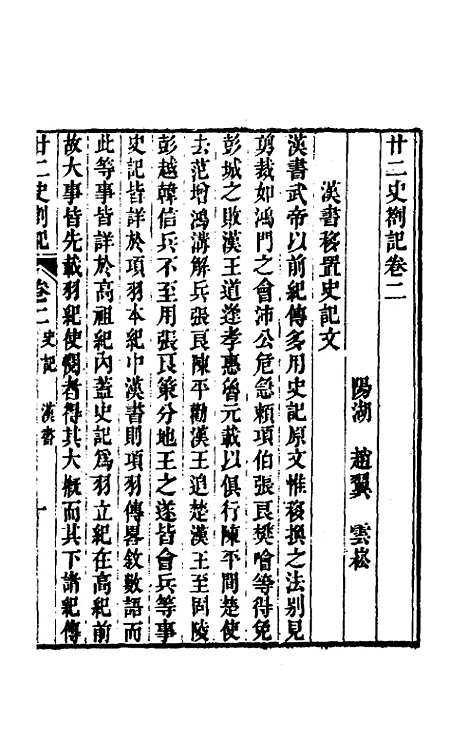 廿二史劄記卷二
陽湖　趙翼　雲崧
漢書移置史記文
漢書武帝以前紀傳多用史記原文惟移換之法別見
剪裁如鴻門之會沛公危急賴項伯張良樊噲等得免
彭城之敗漢王道逢孝惠魯元載以俱行陳平間楚使
去范增鴻溝解兵張良陳平勸漢王追楚漢王至固陵
彭越韓信兵不至用張良策分地王之遂皆會兵等事
史記皆詳於項羽本紀中漢書則項羽傳畧敘數語而
此等事皆詳於高祖紀內蓋史記爲羽立紀在高紀前
故大事皆先載羽紀使閱者得其大概而其下諸紀傳
廿二史劄記　卷二　史記　漢書　一